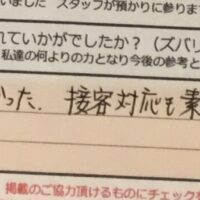 いました　スタッフが預かりに参ります
れていかがでしたか？（ズバリ
私達の何よりの力となり今後の参考と
った、接客対応も素
掲載のご協力頂けるものにチェックを